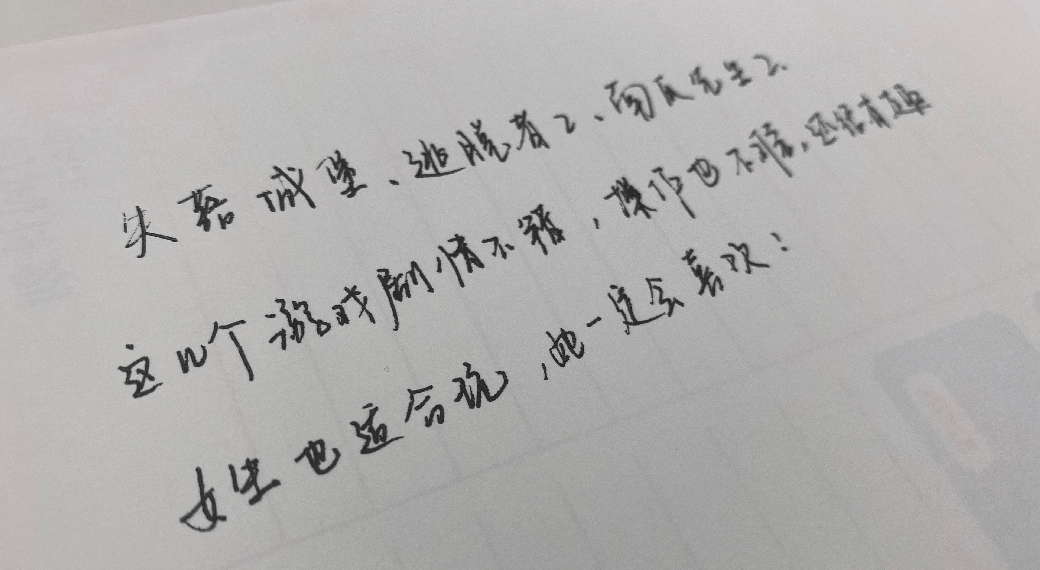 失落城堡、逃脱者2、南瓜先生2、
这几个游戏剧情不错，操作也不难，还有趣
女生也适合玩，她一定会喜欢：